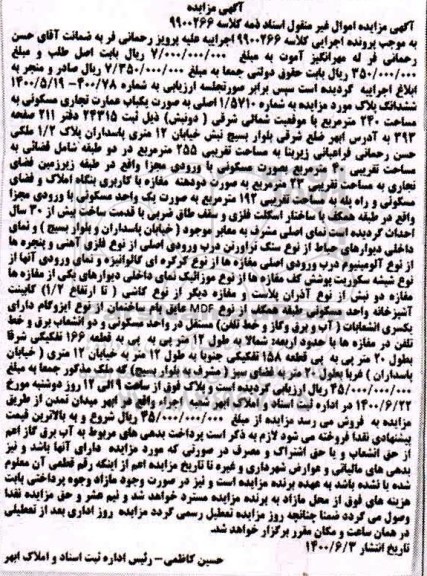 آگهی مزایده
آگهی مزایده اموال غیر منقول اسناد ذمه کلاسه ۹۹۰۰۲۶۶
به موجب پرونده اجرایی کلاسه ۹۹۰۰۲۶۶ اجراییه علیه پرویز رحمانی فر به ضمانت آقای حسن
رحمانی فر له مهرانگیز آموت به مبلغ ۷/۰۰۰/۰۰۰/۰۰۰ ریال بابت اصل طلب و مبلغ
۳۵۰/۰۰۰/۰۰۰ ریال بابت حقوق دولتی جمعا به مبلغ ۷/۳۵۰/۰۰۰/۰۰۰ ریال صادر و منجر به
ابلاغ اجراییه گردیده است سپس برابر صورتجلسه ارزیابی به شماره ۴۰۰/۷۸-۱۴۰۰/۵/۱۹
ششدانگ پلاک مورد مزایده به شماره ۱/۵۷۱۰ اصلی به صورت یکباب عمارت تجاری مسکونی به
مساحت ۲۴۰ مترمربع با موقعیت شمالی شرقی (دونبش) ذیل ثبت ۲۴۳۱۵ دفتر ۲۱۱ صفحه
۳۹۳ به آدرس ابهر ضلع شرقی بلوار بسیج نبش خیابان ۱۲ متری پاسداران پلاک ۱/۲ ملکی
حسن رحمانی فراعیانی زیربنا به مساحت تقریبی ۲۵۵ مترمربع در دو طبقه شامل فضائی به
مساحت تقریبی ۴۰ مترمربع بصورت مسکونی با ورودی مجزا واقع در طبقه زیرزمین فضای
تجاری به مساحت تقریبی ۲۳ مترمربع به صورت دودهنه مغازه با کاربری بنگاه املاک و فضای
مسکونی و راه پله به مساحت تقریبی ۱۹۲ مترمربع به صورت یک واحد مسکونی با ورودی مجزا
واقع در طبقه همکف با ساختار اسکلت فلزی و سقف طاق ضربی با قدمت ساخت بیش از ۳۰ سال
احداث گردیده است نمای اصلی مشرف به معابر موجود (خیابان پاسداران و بلوار بسیج) و نمای
داخلی دیوارهای حیاط از نوع سنگ تراورتن درب ورودی اصلی از نوع فلزی آهنی و پنجره ها
از نوع آلومینیوم درب ورودی اصلی مغازه ها از نوع کرکره ای گالوانیزه و نمای ورودی آنها از
نوع شیشه سکوریت پوشش کف مغازه ها از نوع موزائیک نمای داخلی دیوارهای یکی از مغازه ها
مغازه دو نبش از نوع آذران پلاست و مغازه دیگر از نوع کاشی (تا ارتفاع ۱/۲) کابینت
آشپزخانه واحد مسکونی طبقه همکف از نوع MDF عایق بام ساختمان از نوع ایزوگام دارای
یکسری انشعابات (آب و برق وگاز و خط تلفن) مستقل در واحد مسکونی و دو انشعاب برق و خط
تلفن در مغازه ها با حدود اربعه: شمالا به طول ۱۲ متر پی به پی به قطعه ۱۶۶ تفکیکی شرقا
بطول ۲۰ متر پی به پی قطعه ۱۵۸ تفکیکی جنوبا به طول ۱۲ متر به خیابان ۱۲ متری (خیابان
پاسداران) غربا بطول ۲۰ متر به فضای سبز (مشرف به بلوار بسیج) که ملک مذکور جمعا به مبلغ
۳۵/۰۰۰/۰۰۰/۰۰۰ ریال ارزیابی گردیده است و پلاک فوق از ساعت ۹ الی ۱۲ روز دوشنبه مورخ
۱۴۰۰/۶/۲۲ در اداره ثبت اسناد و املاک ابهر شعبه اجراء واقع در ابهر میدان تمدن از طریق
مزایده به فروش می رسد مزایده از مبلغ ۳۵/۰۰۰/۰۰۰/۰۰۰ ریال شروع و به بالاترین قیمت
پیشنهادی نقدا فروخته می شود لازم به ذکر است پرداخت بدهی های مربوط به آب برق گاز اعم
از حق انشعاب و یا حق اشتراک و مصرف در صورتی که مورد مزایده دارای آنها باشد و نیز
بدهی های مالیاتی و عوارض شهرداری و غیره تا تاریخ مزایده اعم از اینکه رقم قطعی آن معلوم
شده یا نشده باشد به عهده برنده مزایده است و نیز در صورت وجود مازاد وجوه پرداختی بابت
هزینه های فوق از محل مازاد به برنده مزایده مسترد خواهد شد و نیم عشر و حق مزایده نقدا
وصول می گردد ضمنا چنانچه روز مزایده تعطیل رسمی گردد مزایده روز اداری بعد از تعطیلی
در همان ساعت و مکان مقرر برگزار خواهد شد.
تاریخ انتشار ۱۴۰۰/۶/۳
حسین کاظمی - رئیس اداره ثبت اسناد و املاک ابهر